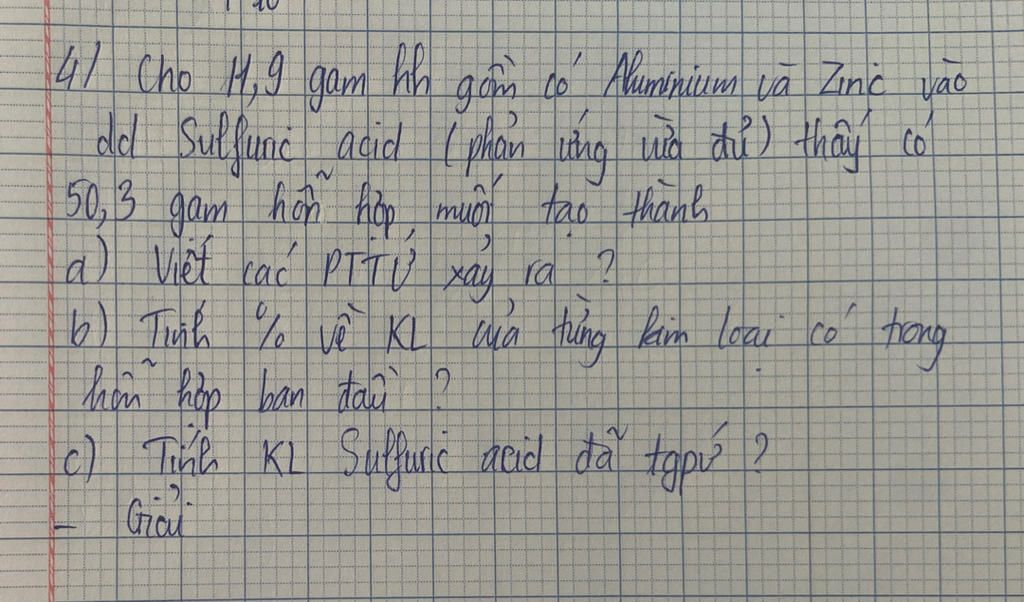 4/ Cho 11,9 gam hh gồm có Aluminium và Zinc vào
dd Sulfuric acid (phản ứng vừa đủ) thấy có
50,3 gam hỗn hợp muối tạo thành
a) Viết các PTTỨ xảy ra ?
b) Tính % về KL của từng kim loại có trong
hỗn hợp ban đầu ?
c) Tính KL Sulfuric acid đã tgpứ ?
- Giải